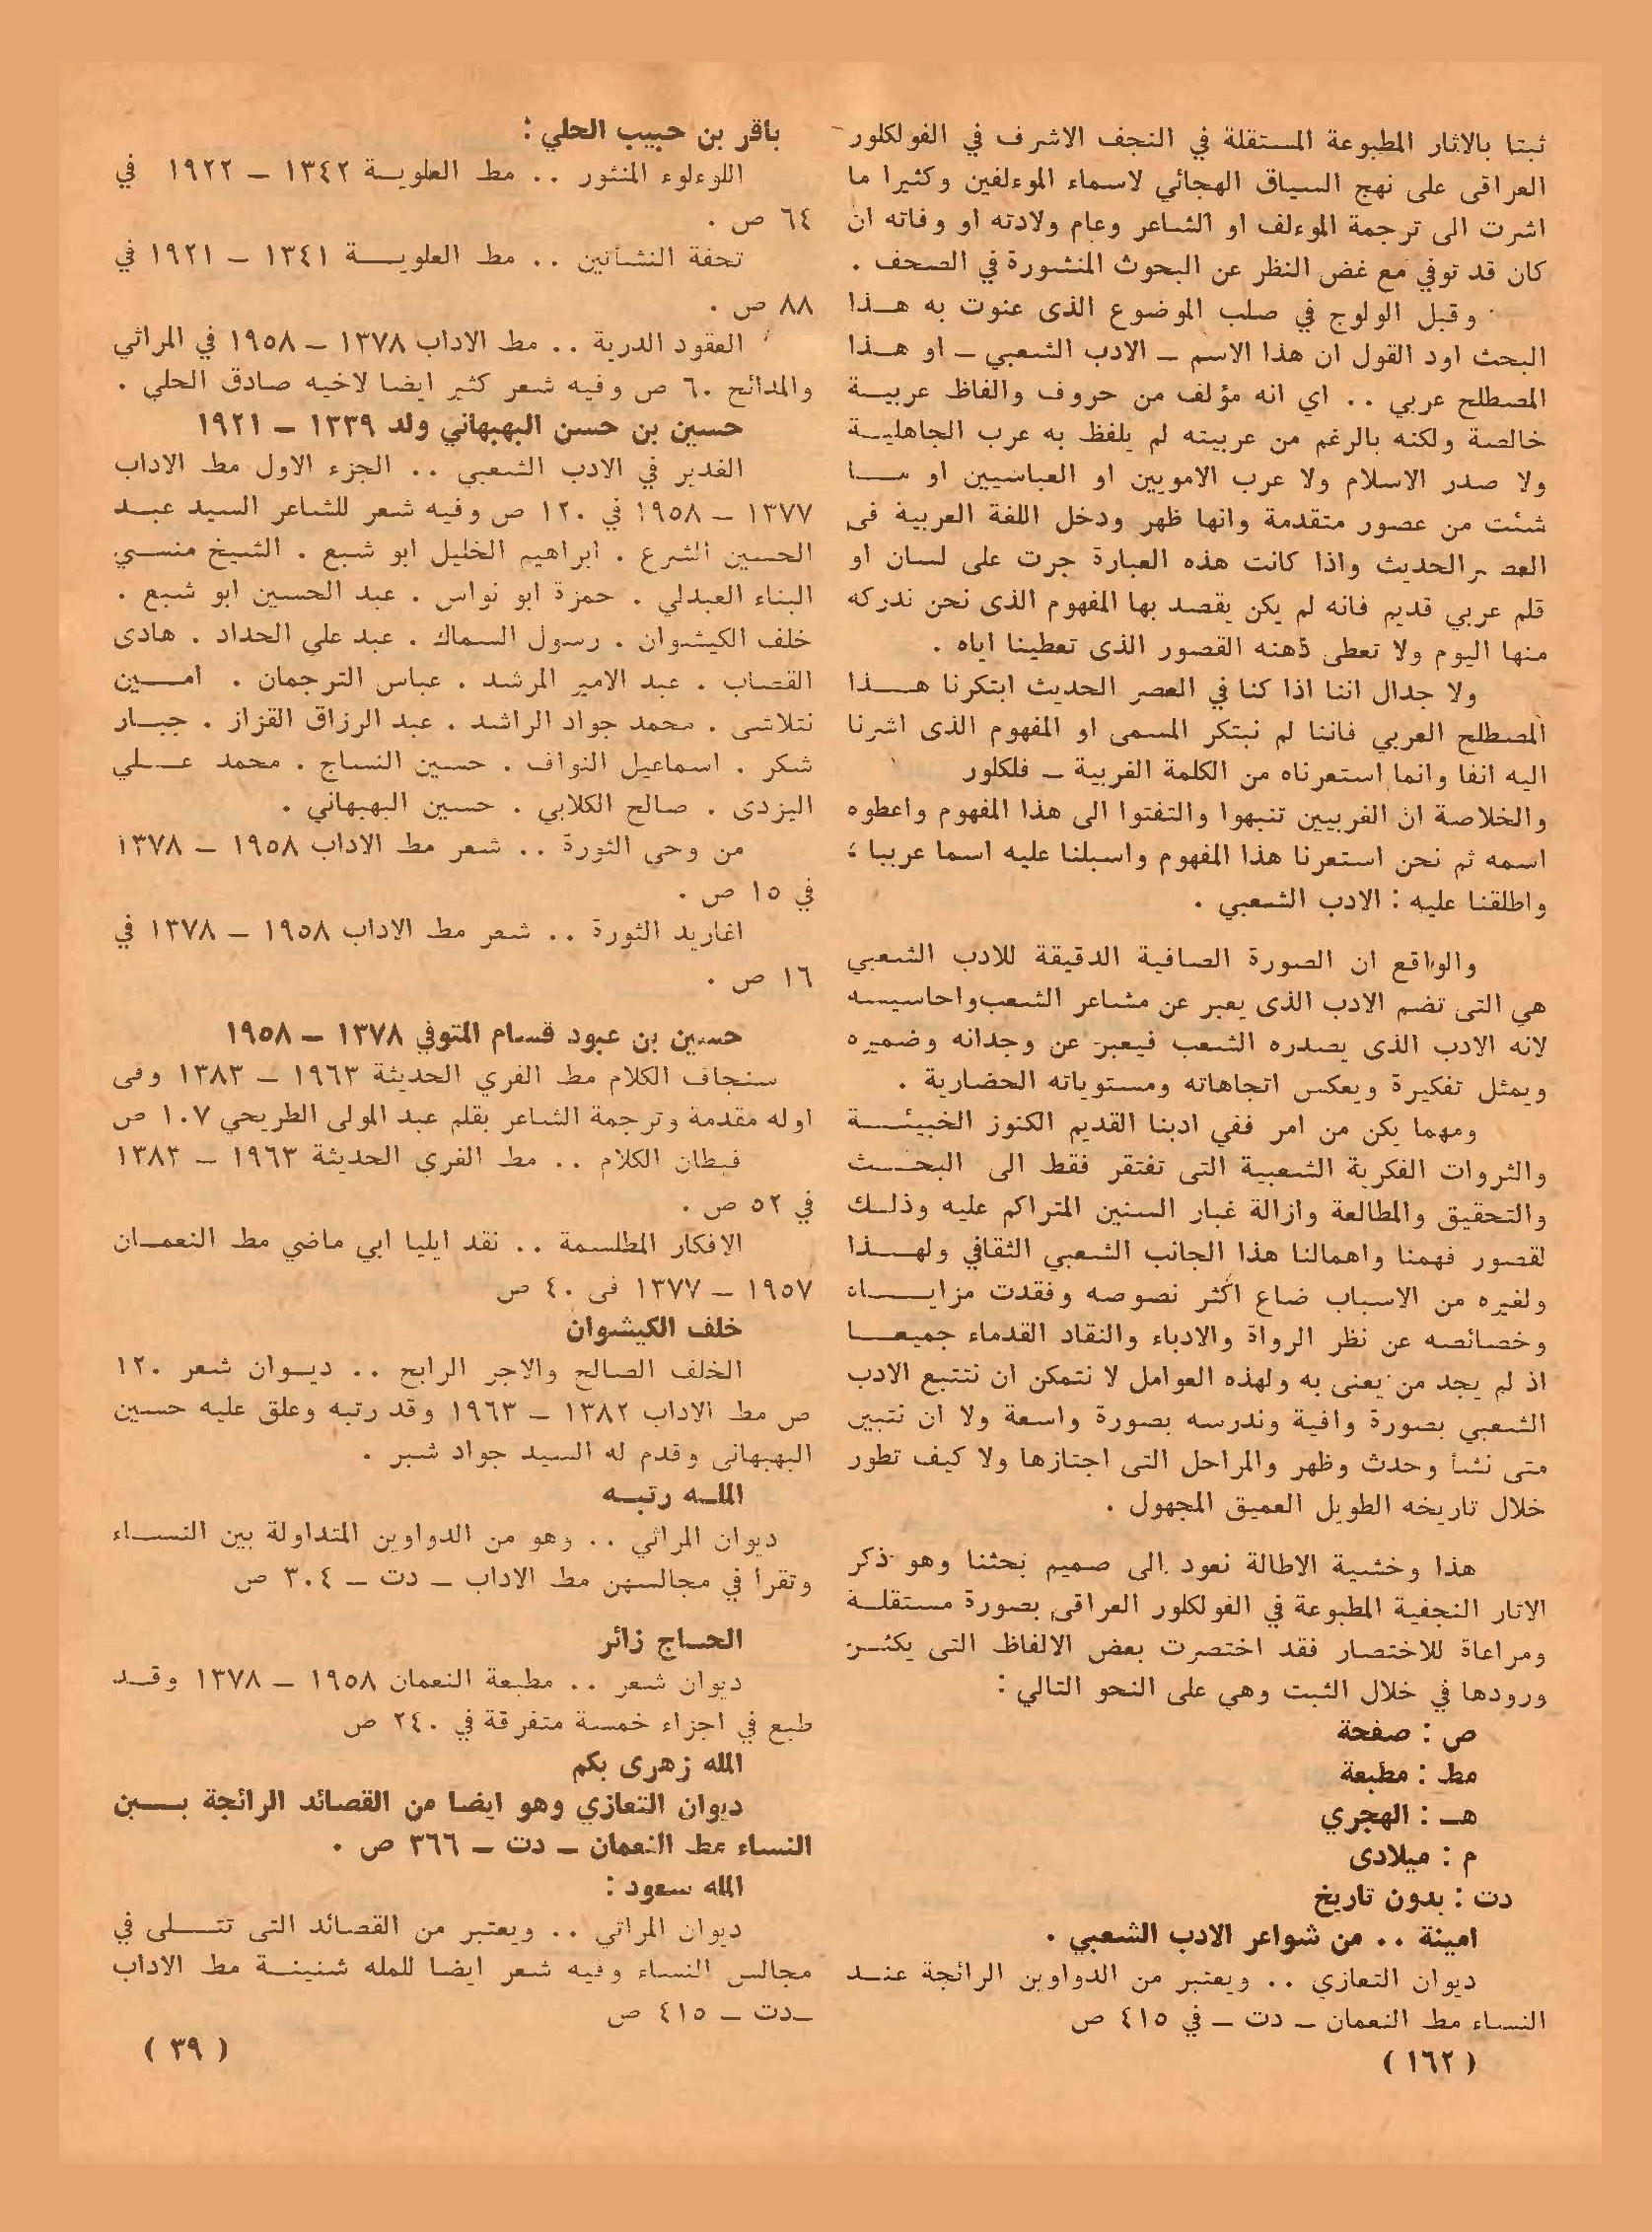 ثبتا بالاثار المطبوعة المستقلة في النجف الاشرف في الفولكلور
العراقى على نهج السياق الهجائي لاسماء الموءلفين وكثيرا ما
اشرت الى ترجمة الموءلف او الشاعر وعام ولادته او وفاته ان
كان قد توفي مع غض النظر عن البحوث المنشورة في الصحف .
وقبل الولوج في صلب الموضوع الذى عنوت به هـــذا
البحث اود القول ان هذا الاسم ـ الادب الشعبي ـ او هــذا
المصطلح عربي .. اي انه مؤلف من حروف والفاظ عربيــة
خالصة ولكنه بالرغم من عربيته لم يلفظ به عرب الجاهليــة
ولا صدر الاسلام ولا عرب الامويين او العباسيين او مـــا
شئت من عصور متقدمة وانها ظهر ودخل اللغة العربية فى
العصر الحديث واذا كانت هذه العبارة جرت على لسان او
قلم عربي قديم فانه لم يكن يقصد بها المفهوم الذى نحن ندركه
منها اليوم ولا تعطى ذهنه القصور الذى تعطينا اياه .
ولا جدال اننا اذا كنا في العصر الحديث ابتكرنا هــــذا
المصطلح العربي فاننا لم نبتكر المسمى او المفهوم الذى اشرنا
اليه انفا وانما استعرناه من الكلمة الغربية ـ فلكلور
والخلاصة ان الغربيين تنبهوا والتفتوا الى هذا المفهوم واعطوه
اسمه ثم نحن استعرنا هذا المفهوم واسبلنا عليه اسما عربيا ؛
واطلقنا عليه : الادب الشعبي .
والواقع ان الصورة الصافية الدقيقة للادب الشعبي
هي التى تضم الادب الذى يعبر عن مشاعر الشعب واحاسيسه
لانه الادب الذى يصدره الشعب فيعبر عن وجدانه وضميره
ويمثل تفكيرة ويعكس اتجاهاته ومستوياته الحضارية .
ومهما يكن من امر ففي ادبنا القديم الكنوز الخبيئـــة
والثروات الفكرية الشعبية التى تفتقر فقط الى البحـــث
والتحقيق والمطالعة وازالة غبار السنين المتراكم عليه وذلــك
لقصور فهمنا واهمالنا هذا الجانب الشعبي الثقافي ولهـــذا
ولغيره من الاسباب ضاع اكثر نصوصه وفقدت مزايــــاه
وخصائصه عن نظر الرواة والادباء والنقاد القدماء جميعــا
اذ لم يجد من يعنى به ولهذه العوامل لا نتمكن ان نتتبع الادب
الشعبي بصورة وافية وندرسه بصورة واسعة ولا ان نتبين
متى نشأ وحدث وظهر والمراحل التى اجتازها ولا كيف تطور
خلال تاريخه الطويل العميق المجهول .
هذا وخشية الاطالة نعود الى صميم بحثنا وهو ذكر
الاثار النجفية المطبوعة في الفولكلور العراقى بصورة مستقلــة
ومراعاة للاختصار فقد اختصرت بعض الالفاظ التى يكثــر
ورودها في خلال الثبت وهي على النحو التالي :
ص : صفحة
مط : مطبعة
هـ : الهجري
م : ميلادى
دت : بدون تاريخ
امينة .. من شواعر الادب الشعبي .
ديوان التعازي .. ويعتبر من الدواوين الرائجة عنــد
النساء مط النعمان ـ دت ـ في ٤١٥ ص
( ١٦٢ )
باقر بن حبيب الحلي :
اللوءلوء المنثور .. مط العلويــة ١٣٤٢ ـ ١٩٢٢ في
٦٤ ص .
تحفة النشأتين .. مط العلويـــة ١٣٤١ ـ ١٩٢١ في
٨٨ ص .
العقود الدرية .. مط الاداب ١٣٧٨ ـ ١٩٥٨ في المراثي
والمدائح ٦٠ ص وفيه شعر كثير ايضا لاخيه صادق الحلي .
حسين بن حسن البهبهاني ولد ١٣٣٩ ـ ١٩٢١
الغدير في الادب الشعبي .. الجزء الاول مط الاداب
١٣٧٧ ـ ١٩٥٨ في ١٢٠ ص وفيه شعر للشاعر السيد عبــد
الحسين الشرع . ابراهيم الخليل ابو شبع . الشيخ منســي
البناء العبدلي . حمزة ابو نواس . عبد الحسين ابو شبع .
خلف الكيشوان . رسول السماك . عبد علي الحداد . هادى
القصاب . عبد الامير المرشد . عباس الترجمان . امـــين
نتلاشى . محمد جواد الراشد . عبد الرزاق القزاز . جبــار
شكر . اسماعيل النواف . حسين النساج . محمد عـــلي
اليزدى . صالح الكلابي . حسين البهبهاني .
من وحى الثورة .. شعر مط الاداب ١٩٥٨ ـ ١٣٧٨
في ١٥ ص .
اغاريد الثورة .. شعر مط الاداب ١٩٥٨ ـ ١٣٧٨ في
١٦ ص .
حسين بن عبود قسام المتوفي ١٣٧٨ ـ ١٩٥٨
سنجاف الكلام مط الغري الحديثة ١٩٦٣ ـ ١٣٨٣ وفى
اوله مقدمة وترجمة الشاعر بقلم عبد المولى الطريحي ١٠٧ ص
قيطان الكلام .. مط الغري الحديثة ١٩٦٣ ـ ١٣٨٣
في ٥٢ ص .
الافكار المطلسمة .. نقد ايليا ابي ماضي مط النعمــان
١٩٥٧ ـ ١٣٧٧ فى ٤٠ ص
خلف الكيشوان
الخلف الصالح والاجر الرابح .. ديــوان شعر ١٢٠
ص مط الاداب ١٣٨٢ ـ ١٩٦٣ وقد رتبه وعلق عليه حسين
البهبهانى وقدم له السيد جواد شبر .
المللــه رتبــه
ديوان المراثي .. وهو من الدواوين المتداولة بين النســاء
وتقرأ في مجالسهن مط الاداب ـ دت ـ ٣٠٤ ص
الحــاج زائر
ديوان شعر .. مطبعة النعمان ١٩٥٨ ـ ١٣٧٨ وقــد
طبع في اجزاء خمسة متفرقة في ٢٤٠ ص
المله زهرى بكم
ديوان التعازي وهو ايضا من القصائد الرائجة بــــين
النساء مط النعمان ـ دت ـ ٣٦٦ ص .
المله سعود :
ديوان المراثي .. ويعتبر من القصائد التى تتـــلى في
مجالس النساء وفيه شعر ايضا للمله شنينــة مط الاداب
ـدت ـ ٤١٥ ص
( ٣٩ )